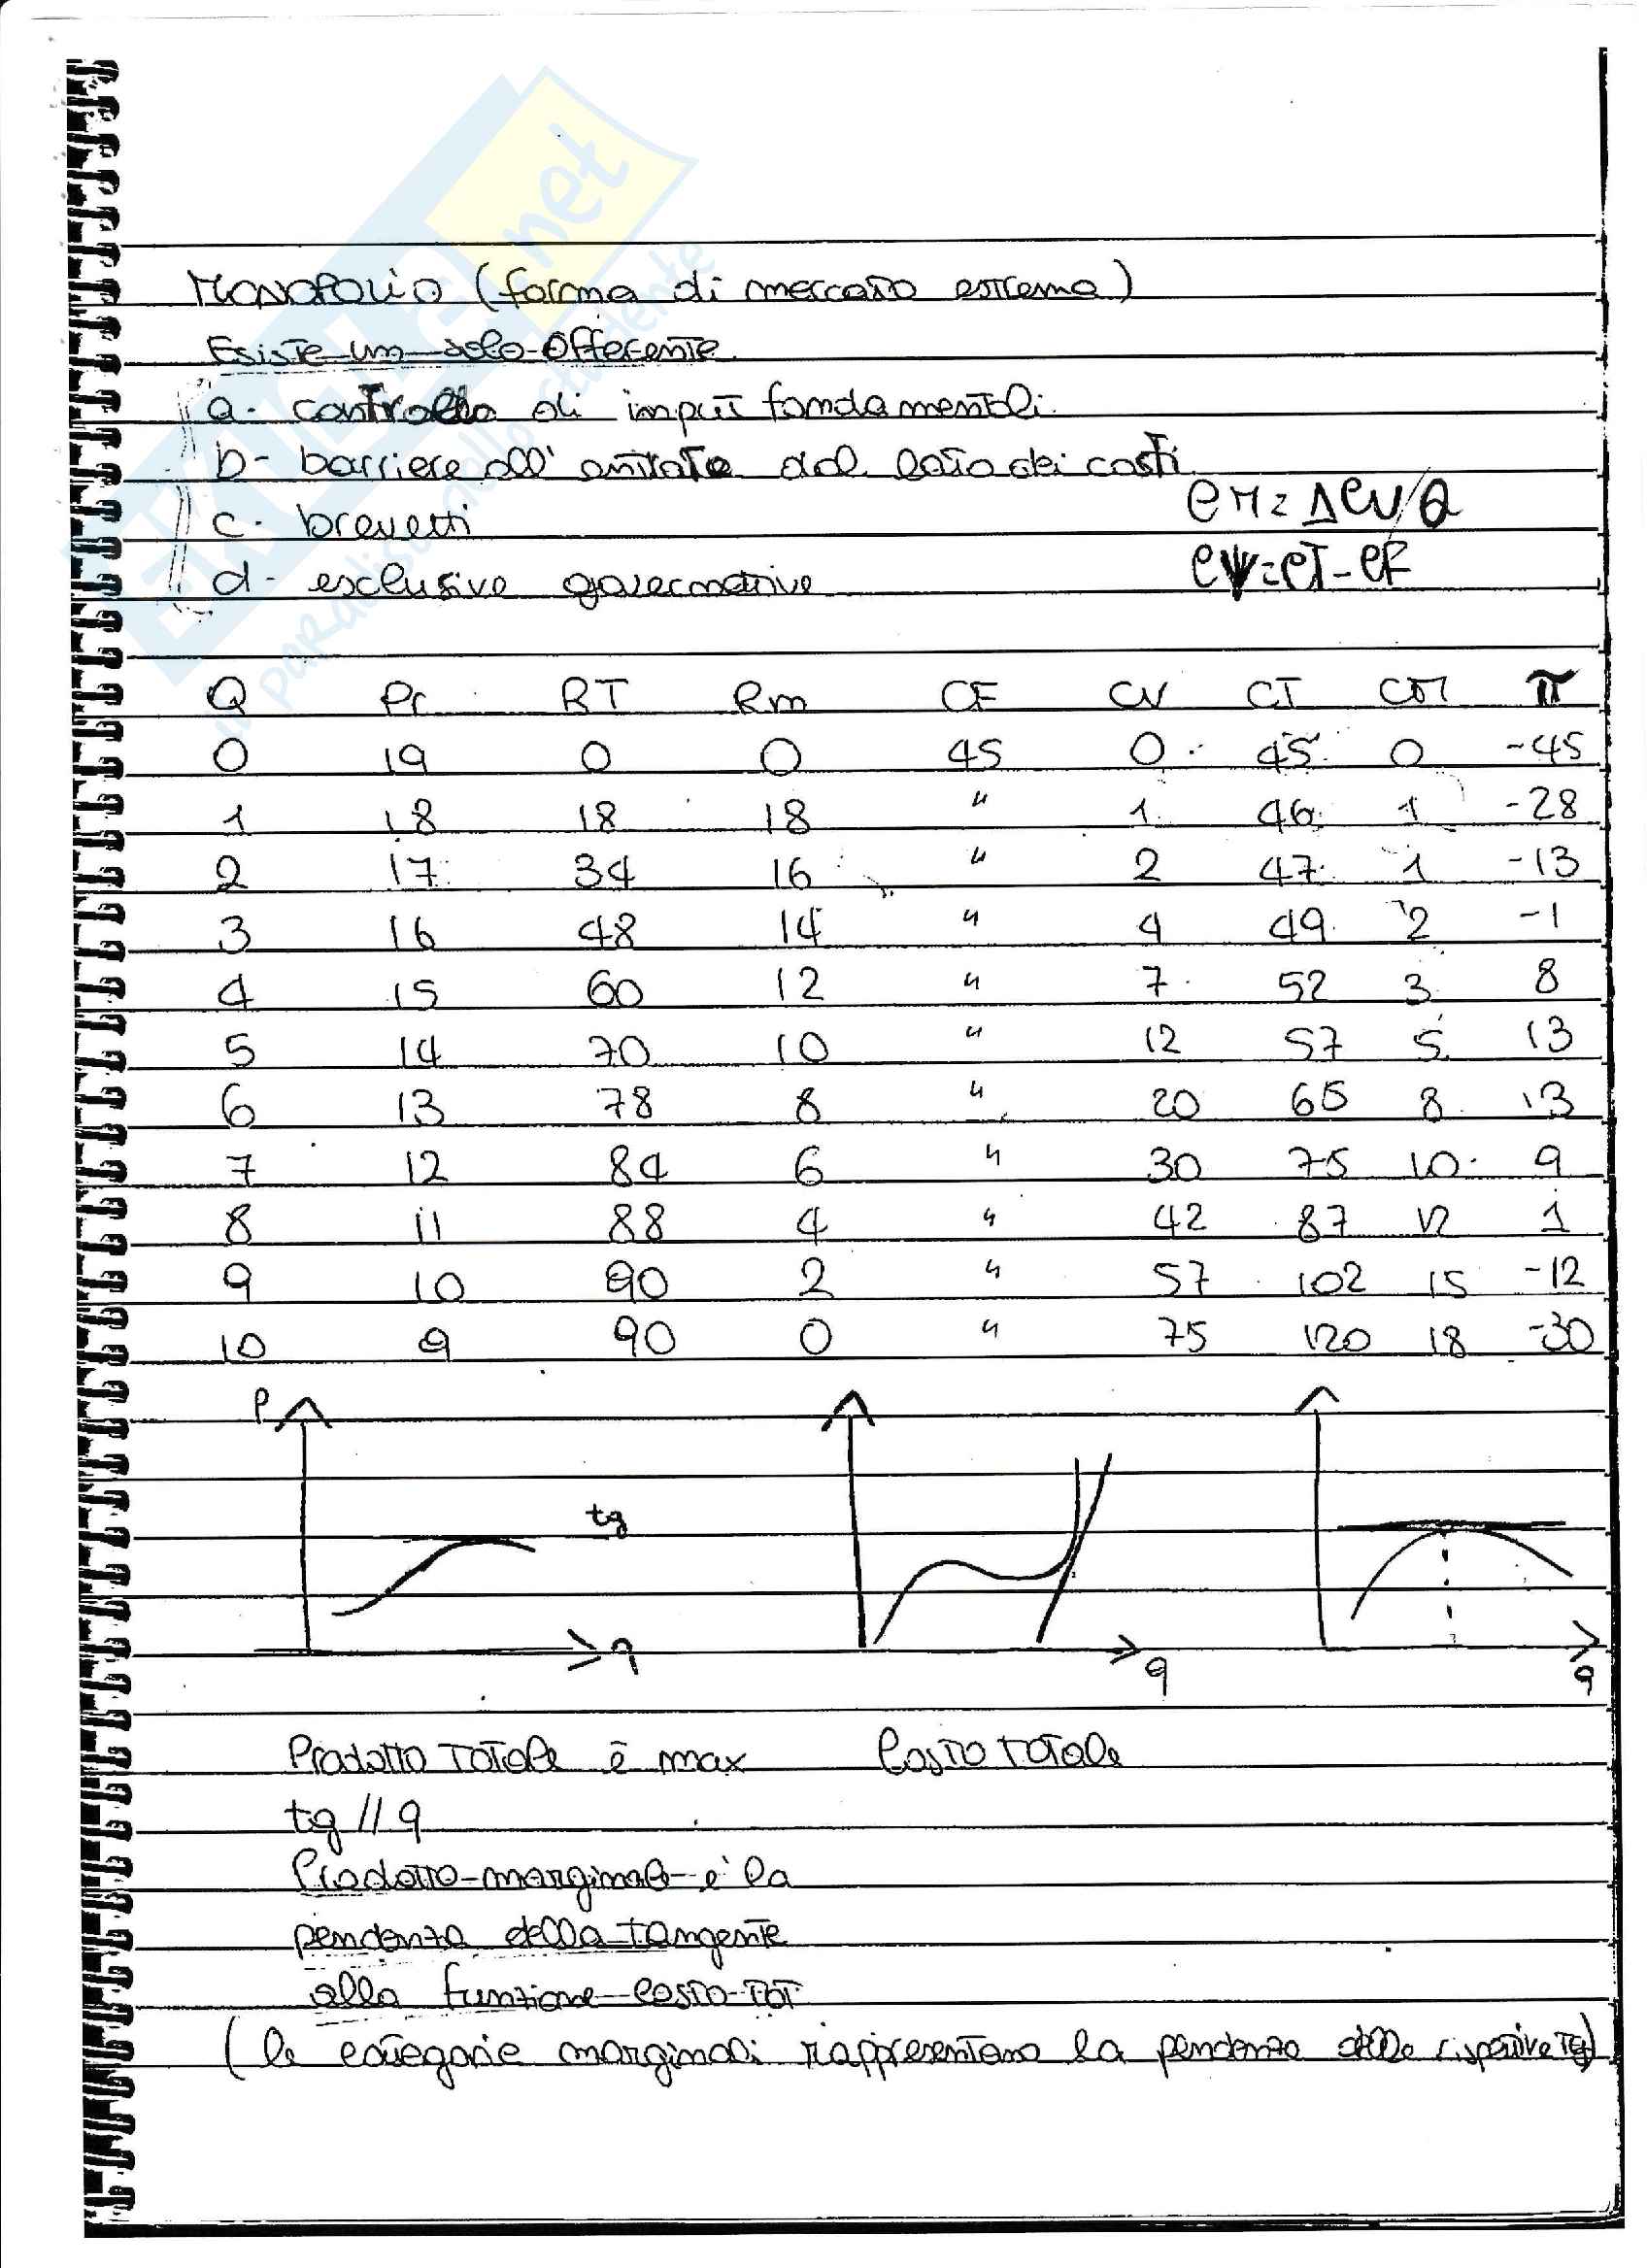 SKUOLA.net
il paradiso dello studente
MONOPOLIO (forma di mercato estrema)
Esiste un solo offerente
a- controllo di input fondamentali
b- barriere all'entrata dal lato dei costi
c- brevetti
d- esclusive governative
CM = ΔCV/Q
CV = CT - CF
Q Pr RT Rm CF CV CT CM π
0 19 0 0 45 0 45 0 -45
1 18 18 18 " 1 46 1 -28
2 17 34 16 " 2 47 1 -13
3 16 48 14 " 4 49 2 -1
4 15 60 12 " 7 52 3 8
5 14 70 10 " 12 57 5 13
6 13 78 8 " 20 65 8 13
7 12 84 6 " 30 75 10 9
8 11 88 4 " 42 87 12 1
9 10 90 2 " 57 102 15 -12
10 9 90 0 " 75 120 18 -30
P
tg
q q q
Prodotto Totale è max Costo Totale
tg // q
Prodotto marginale è la
pendenza della tangente
alla funzione costo TOT
(le categorie marginali rappresentano la pendenza delle rispettive tg)